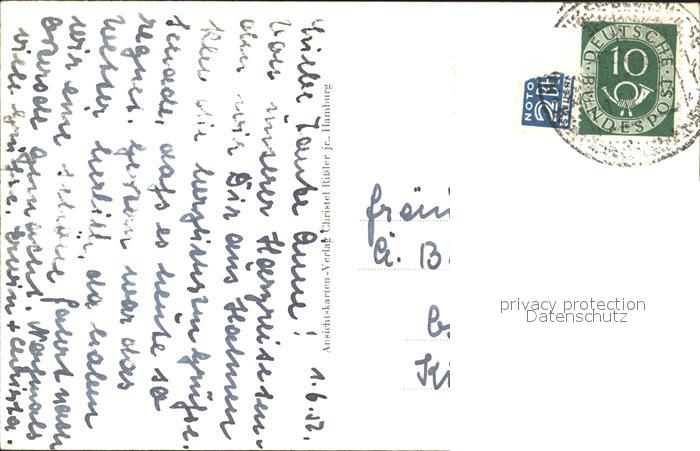 1.6.52.
Liebe Tante Anne!
Von unserer Harzreise sen-
den wir Dir aus Hahnen
klee die herzlichsten Grüße.
Schade, dass es heute so
regnet. Gestern war das
Wetter herrlich, da haben
wir eine schöne Fahrt nach
gemacht. Nochmals
viele Grüße, Erwin + Christa.
Ansichtskarten-Verlag Christel Rißler jr., Hamburg
Fräu
A. B
K
NOTOPFER
2
STEUERMARKE
DEUTSCHE
10
BUNDESPOST
privacy protection
Datenschutz